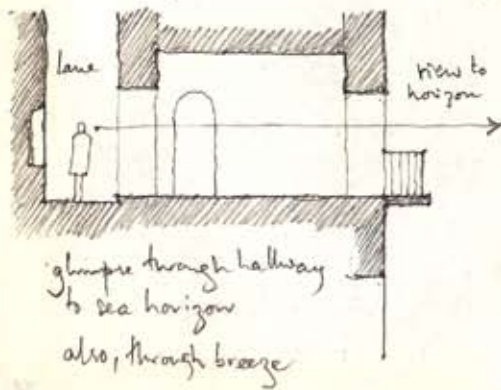 lane
view to
horizon
glimpse through hallway
to sea horizon
also, through breeze